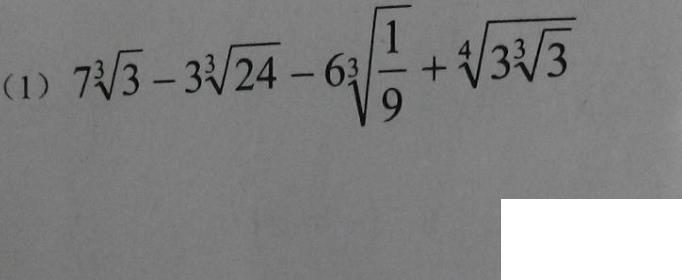 (1) $7\sqrt[3]{3} - 3\sqrt[3]{24} - 6\sqrt[3]{\frac{1}{9}} + \sqrt[4]{3\sqrt[3]{3}}$